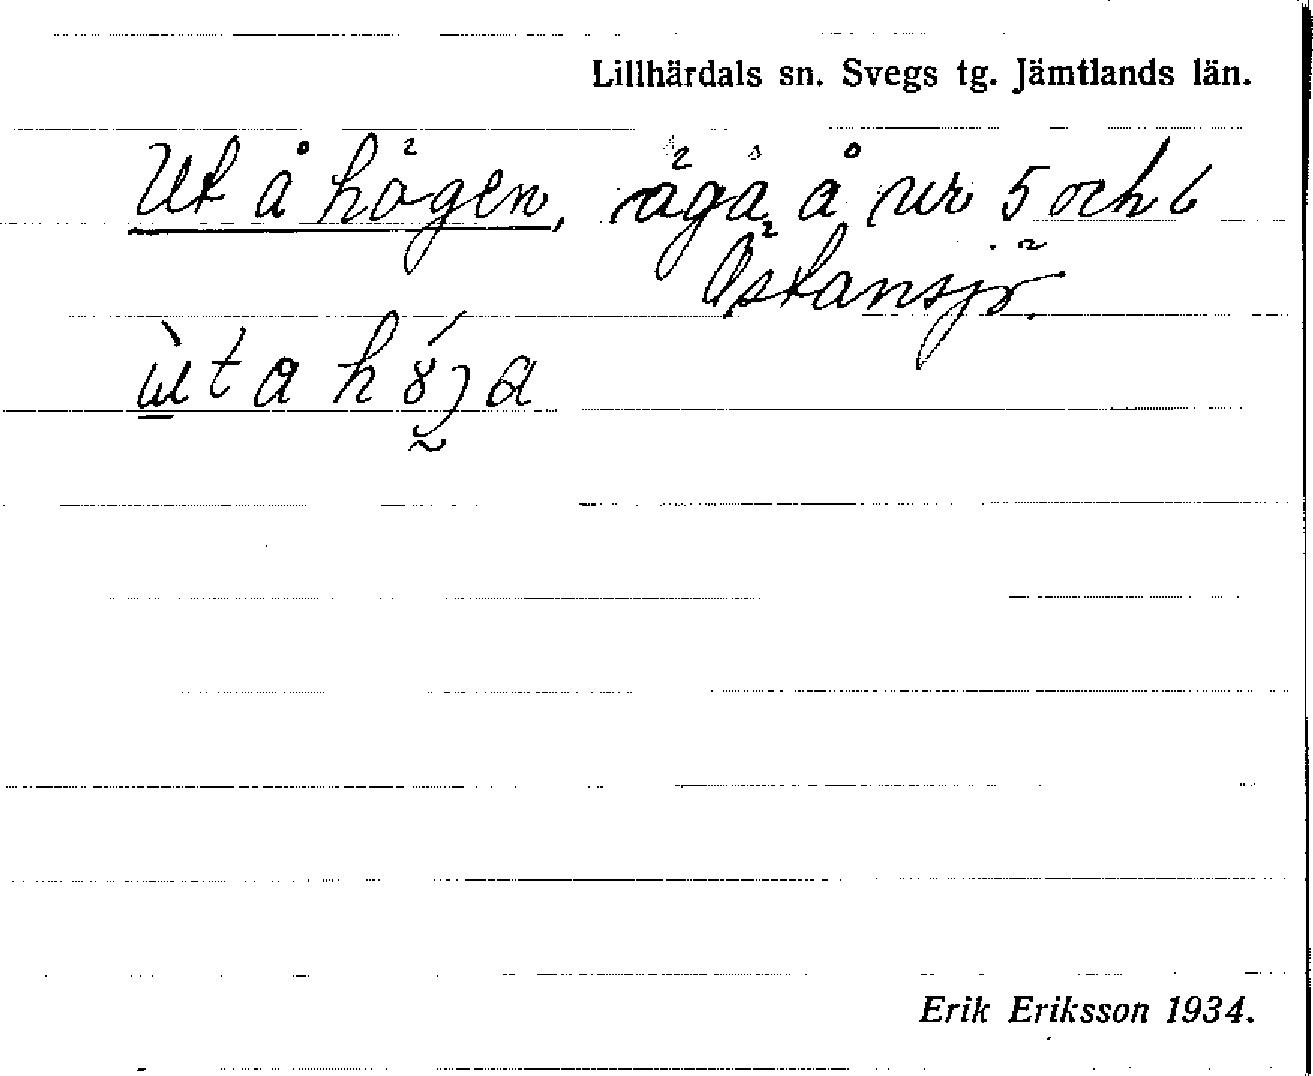 Lillhärdals sn. Svegs tg. Jämtlands län.
Ut å högen, ägå å nr 5 och 6
Östansjö.
Erik Eriksson 1934.